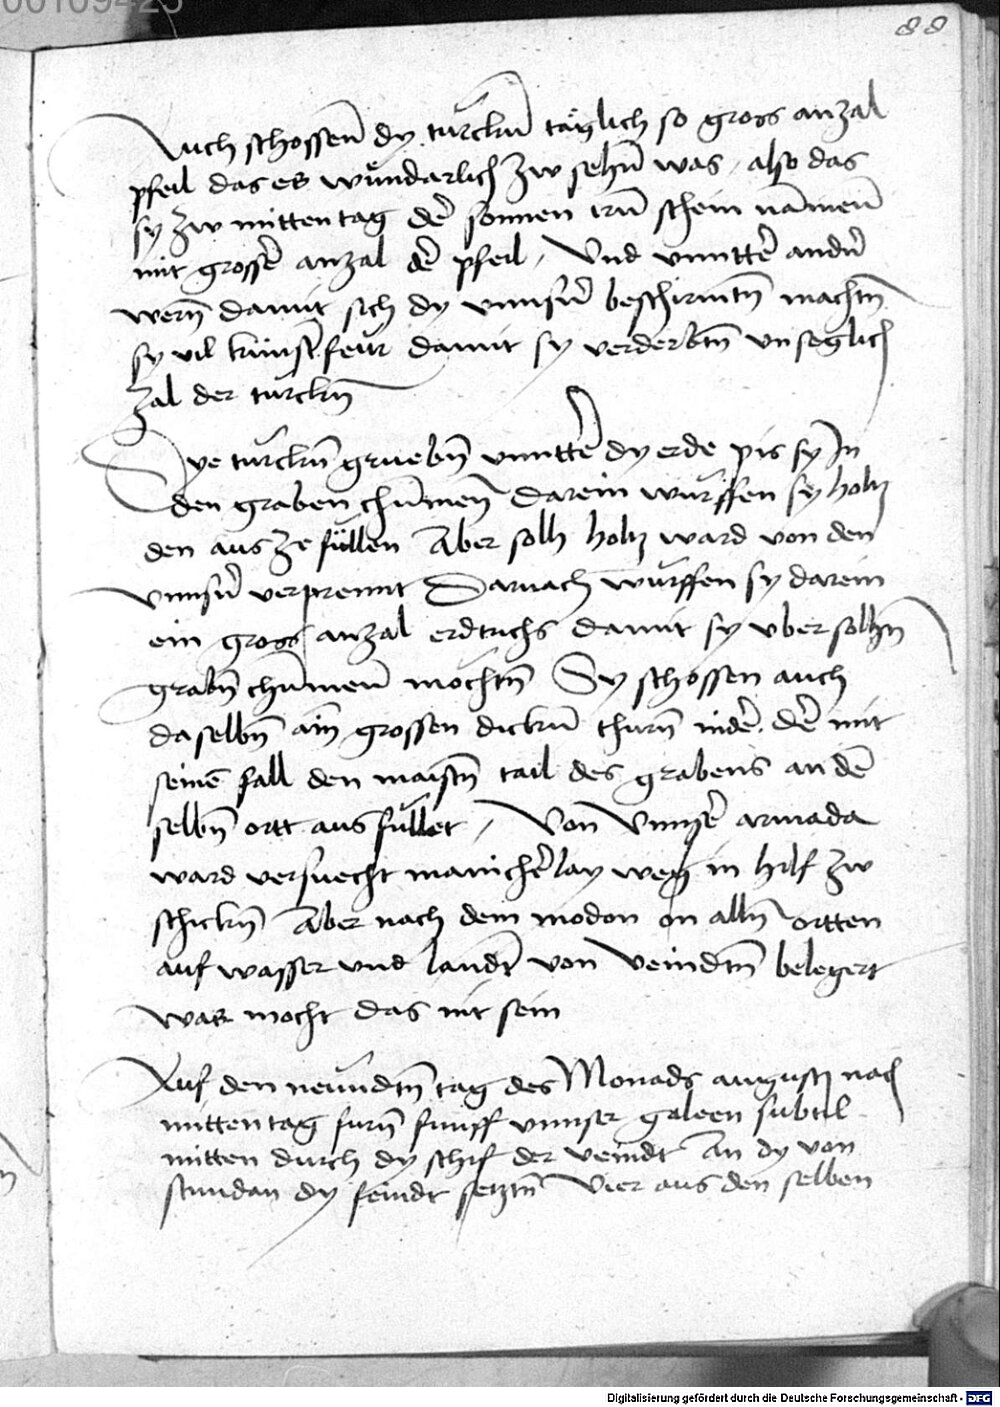 00109425
88
Auch schossen̄ dy turckn̄ täglich so gross anzal
pfeil das es wundarlich zw sehn̄ was, also das
sy zw mittentag der̄ sonnen irn̄ schein nāmen̄
mit grosser̄ anzal der̄ pfeil, Vnd vnntter̄ andn̄
wern̄ damit sich dy vnnsn̄ beschirmtn̄ machtn̄
sy vil kunst feur damit sy verderbtn̄ vnseglich
zal der turckn̄
Dye turckn̄ gruebn̄ vnntter̄ dy erde pis sy In
den graben chūmen̄ darein wurffen sy holtz
den aus ze füllen Aber solh holtz ward von den
vnnsn̄ verprennt Darnach wurffen sy darein
ein gross anzal erdtrichs damit sy vber solhn̄
grabn̄ chūmen̄ mochtn̄ Sy schossen auch
daselbn̄ ain̄ grossen dickn̄ thurn̄ nider̄. der̄ mit
seinē fall den maistn̄ tail des grabens an dē
selbn̄ ortt aus fullet, Von Vnnser̄ armada
ward versuecht manicher̄lay weg in hilf zw
schickn̄ Aber nach dem modon on alln̄ ortten
auf wasser vnd landt von veindtn̄ belegert
was mocht das nit sein
Auf den neundtn̄ tag des Monads augusti nach
mittentag furn̄ funff vnnser galeen subtil
mitten durch dy schif der veindt An dy von
stundan dy feindt setztn̄ Vier aus den selben
Digitalisierung gefördert durch die Deutsche Forschungsgemeinschaft - DFG